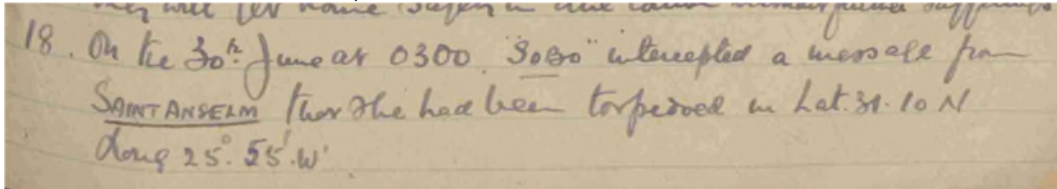 they will get home safely
18. On the 30th June at 0300. "SOBO" intercepted a message from
SAINT ANSELM that she had been torpedoed in Lat. 31.10 N
Long 25°. 55'. W'